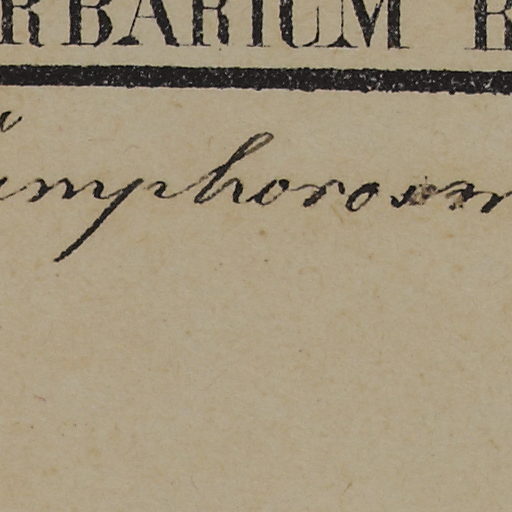 RBARIUM R
imphorosm